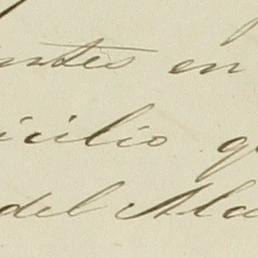 ntes en
icilio q
del Alca